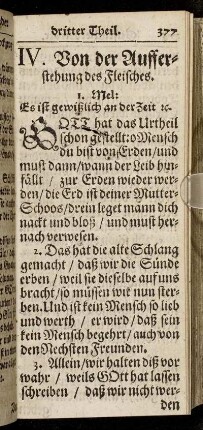 dritter Theil. 377
IV. Von der Auffer-
stehung des Fleisches.
1. Mel:
Es ist gewißlich an der Zeit ꝛc.
GOTT hat das Urtheil
schon gestellt: o Mensch
du bist von Erden / und
must dann / wann der Leib hin-
fällt / zur Erden wieder wer-
den / die Erd ist deiner Mutter-
Schoos / drein leget mann dich
nackt und bloß / und must her-
nach verwesen.
2. Das hat die alte Schlang
gemacht / daß wir die Sünde
erben / weil sie dieselbe auf uns
bracht / so müssen wir nun ster-
ben. Und ist kein Mensch so lieb
und werth / er wird / daß sein
kein Mensch begehrt / auch von
den Nechsten Freunden.
3. Allein / wir halten diß vor
wahr / weils GOtt hat lassen
schreiben / daß wir nicht wer-
den